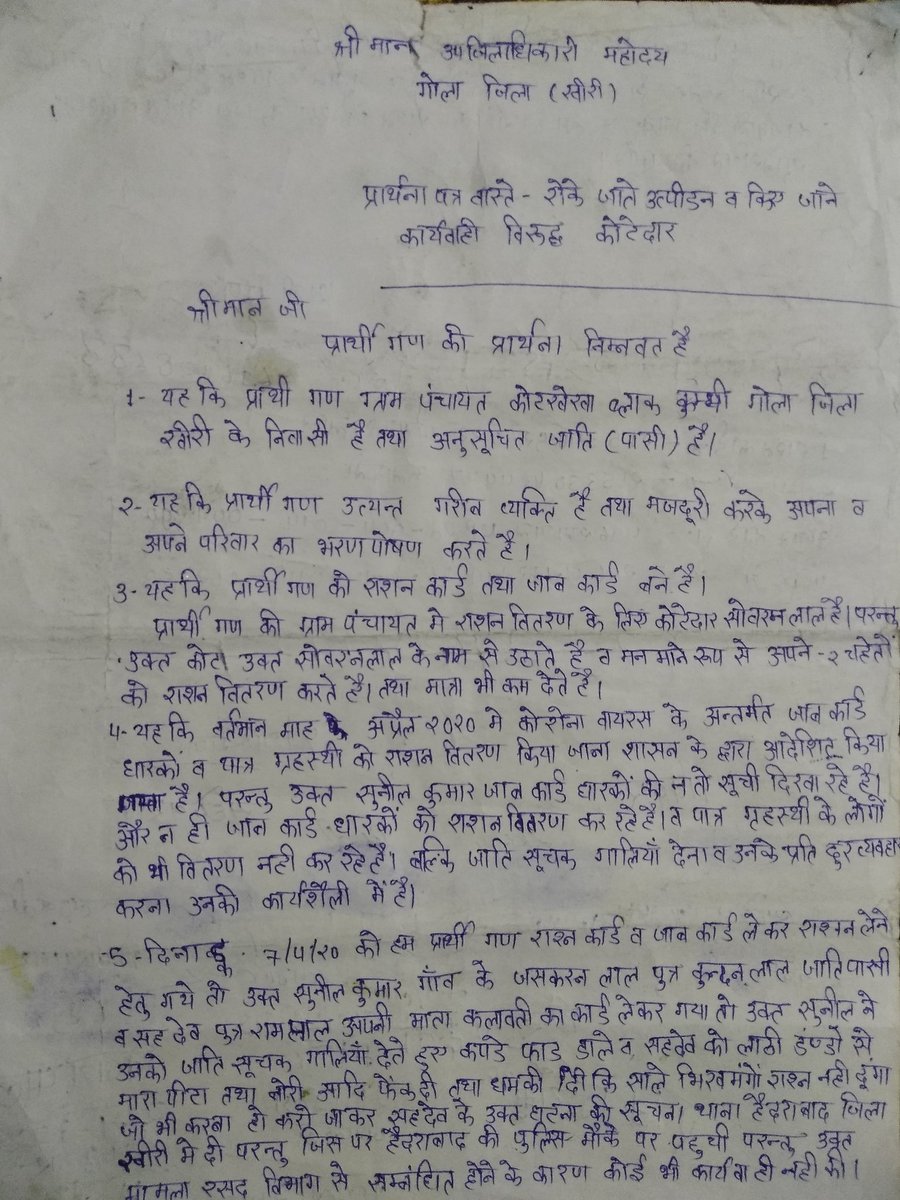 श्री मान उपजिलाधिकारी महोदय
गोला जिला (खीरी)
प्रार्थना पत्र वास्ते - रोके जाने उत्पीडन व किए जाने
कार्यवाही विरूद्ध कोटेदार
श्रीमान जी
प्रार्थी गण की प्रार्थना निम्नवत है
1- यह कि प्रार्थी गण ग्राम पंचायत कोटखेरवा ब्लाक कुम्भी गोला जिला
खीरी के निवासी है तथा अनुसूचित जाति (पासी) है।
2- यह कि प्रार्थी गण अत्यन्त गरीब व्यक्ति है तथा मजदूरी करके अपना व
अपने परिवार का भरण पोषण करते है।
3- यह कि प्रार्थी गण को राशन कार्ड तथा जाब कार्ड बने है।
प्रार्थी गण की ग्राम पंचायत मे राशन वितरण के लिए कोटेदार सोवरन लाल है। परन्तु
उक्त कोटा उक्त सोवरनलाल के नाम से उठाते है व मन माने रूप से अपने -२ चहेतो
को राशन वितरण करते है। तथा मात्रा भी कम देते है।
4- यह कि वर्तमान माह अप्रैल २०२० मे कोरोना वायरस के अन्तर्गत जाब कार्ड
धारकों व पात्र ग्रहस्थी को राशन वितरण किया जाना शासन के द्वारा आदेशित किया
है। परन्तु उक्त सुनील कुमार जाब कार्ड धारकों की न तो सूची दिखा रहे है।
और न ही जाब कार्ड धारकों को राशन वितरण कर रहे है। व पात्र गृहस्थी के लोगों
को भी वितरण नही कर रहे है। बल्कि जाति सूचक गालियाँ देना व उनके प्रति दुरव्यवहार
करना उनकी कार्यशैली में है।
5- दिनांक 7/4/20 को हम प्रार्थी गण राशन कार्ड व जाब कार्ड लेकर राशन लेने
हेतु गये तो उक्त सुनील कुमार गाँव के जसकरन लाल पुत्र कुन्दन लाल जाति पासी
व सहदेव पुत्र रामलाल अपनी माता कलावती का कार्ड लेकर गया तो उक्त सुनील ने
उनको जाति सूचक गालियाँ देते हुए कपडे फाड डाले व सहदेव को लाठी डण्डो से
मारा पीटा तथा बोरी आदि फेंक दी तथा धमकी दी कि साले भिखमंगों राशन नही दूंगा
जो भी करना हो करो जाकर सहदेव के उक्त घटना की सूचना थाना हैदराबाद जिला
खीरी मे दी परन्तु जिस पर हैदराबाद की पुलिस मौके पर पहुची परन्तु उक्त
मामला रसद विभाग से सम्नंधित होने के कारण कोई भी कार्यवाही नही की।